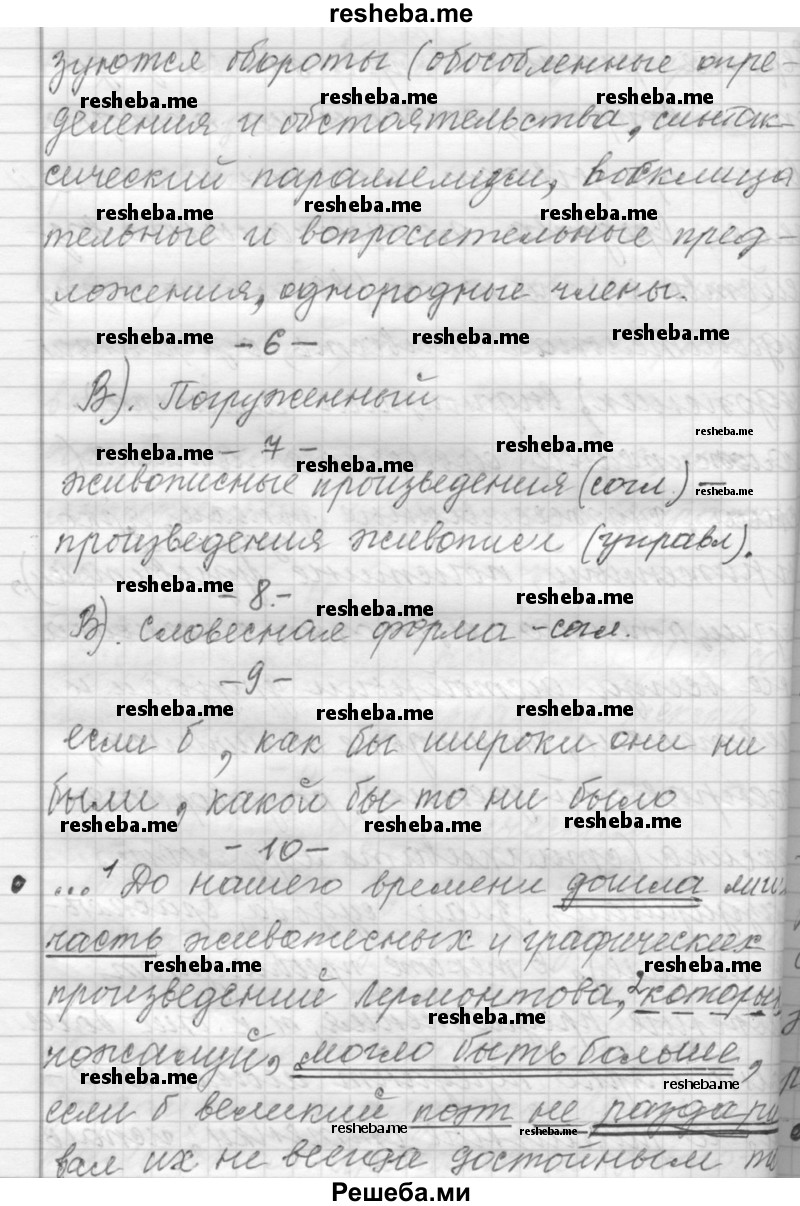 resheba.me
зуются обороты (обособленные опре-
resheba.me resheba.me resheba.me
деления и обстоятельства, синтак-
сический параллелизм, восклица
resheba.me resheba.me resheba.me
тельные и вопросительные пред-
ложения, однородные члены.
resheba.me - 6 - resheba.me resheba.me
В). Погруженный
resheba.me - 7 - resheba.me resheba.me resheba.me
живописные произведения (согл.) – resheba.me
произведения живописи (управл).
resheba.me - 8. - resheba.me resheba.me
В). Словесная форма - согл.
- 9 -
resheba.me resheba.me resheba.me
если б, как бы широки они ни
были, какой бы то ни было
resheba.me - 10 - resheba.me resheba.me
... 1 До нашего времени дошла лиш
часть живописных и графических
resheba.me resheba.me
произведений Лермонтова, 2 которы
resheba.me
пожалуй, могло быть больше,
resheba.me resheba.me
если б великий поэт не раздари
resheba.me resheba.me
вал их не всегда достойным
Решеба.ми